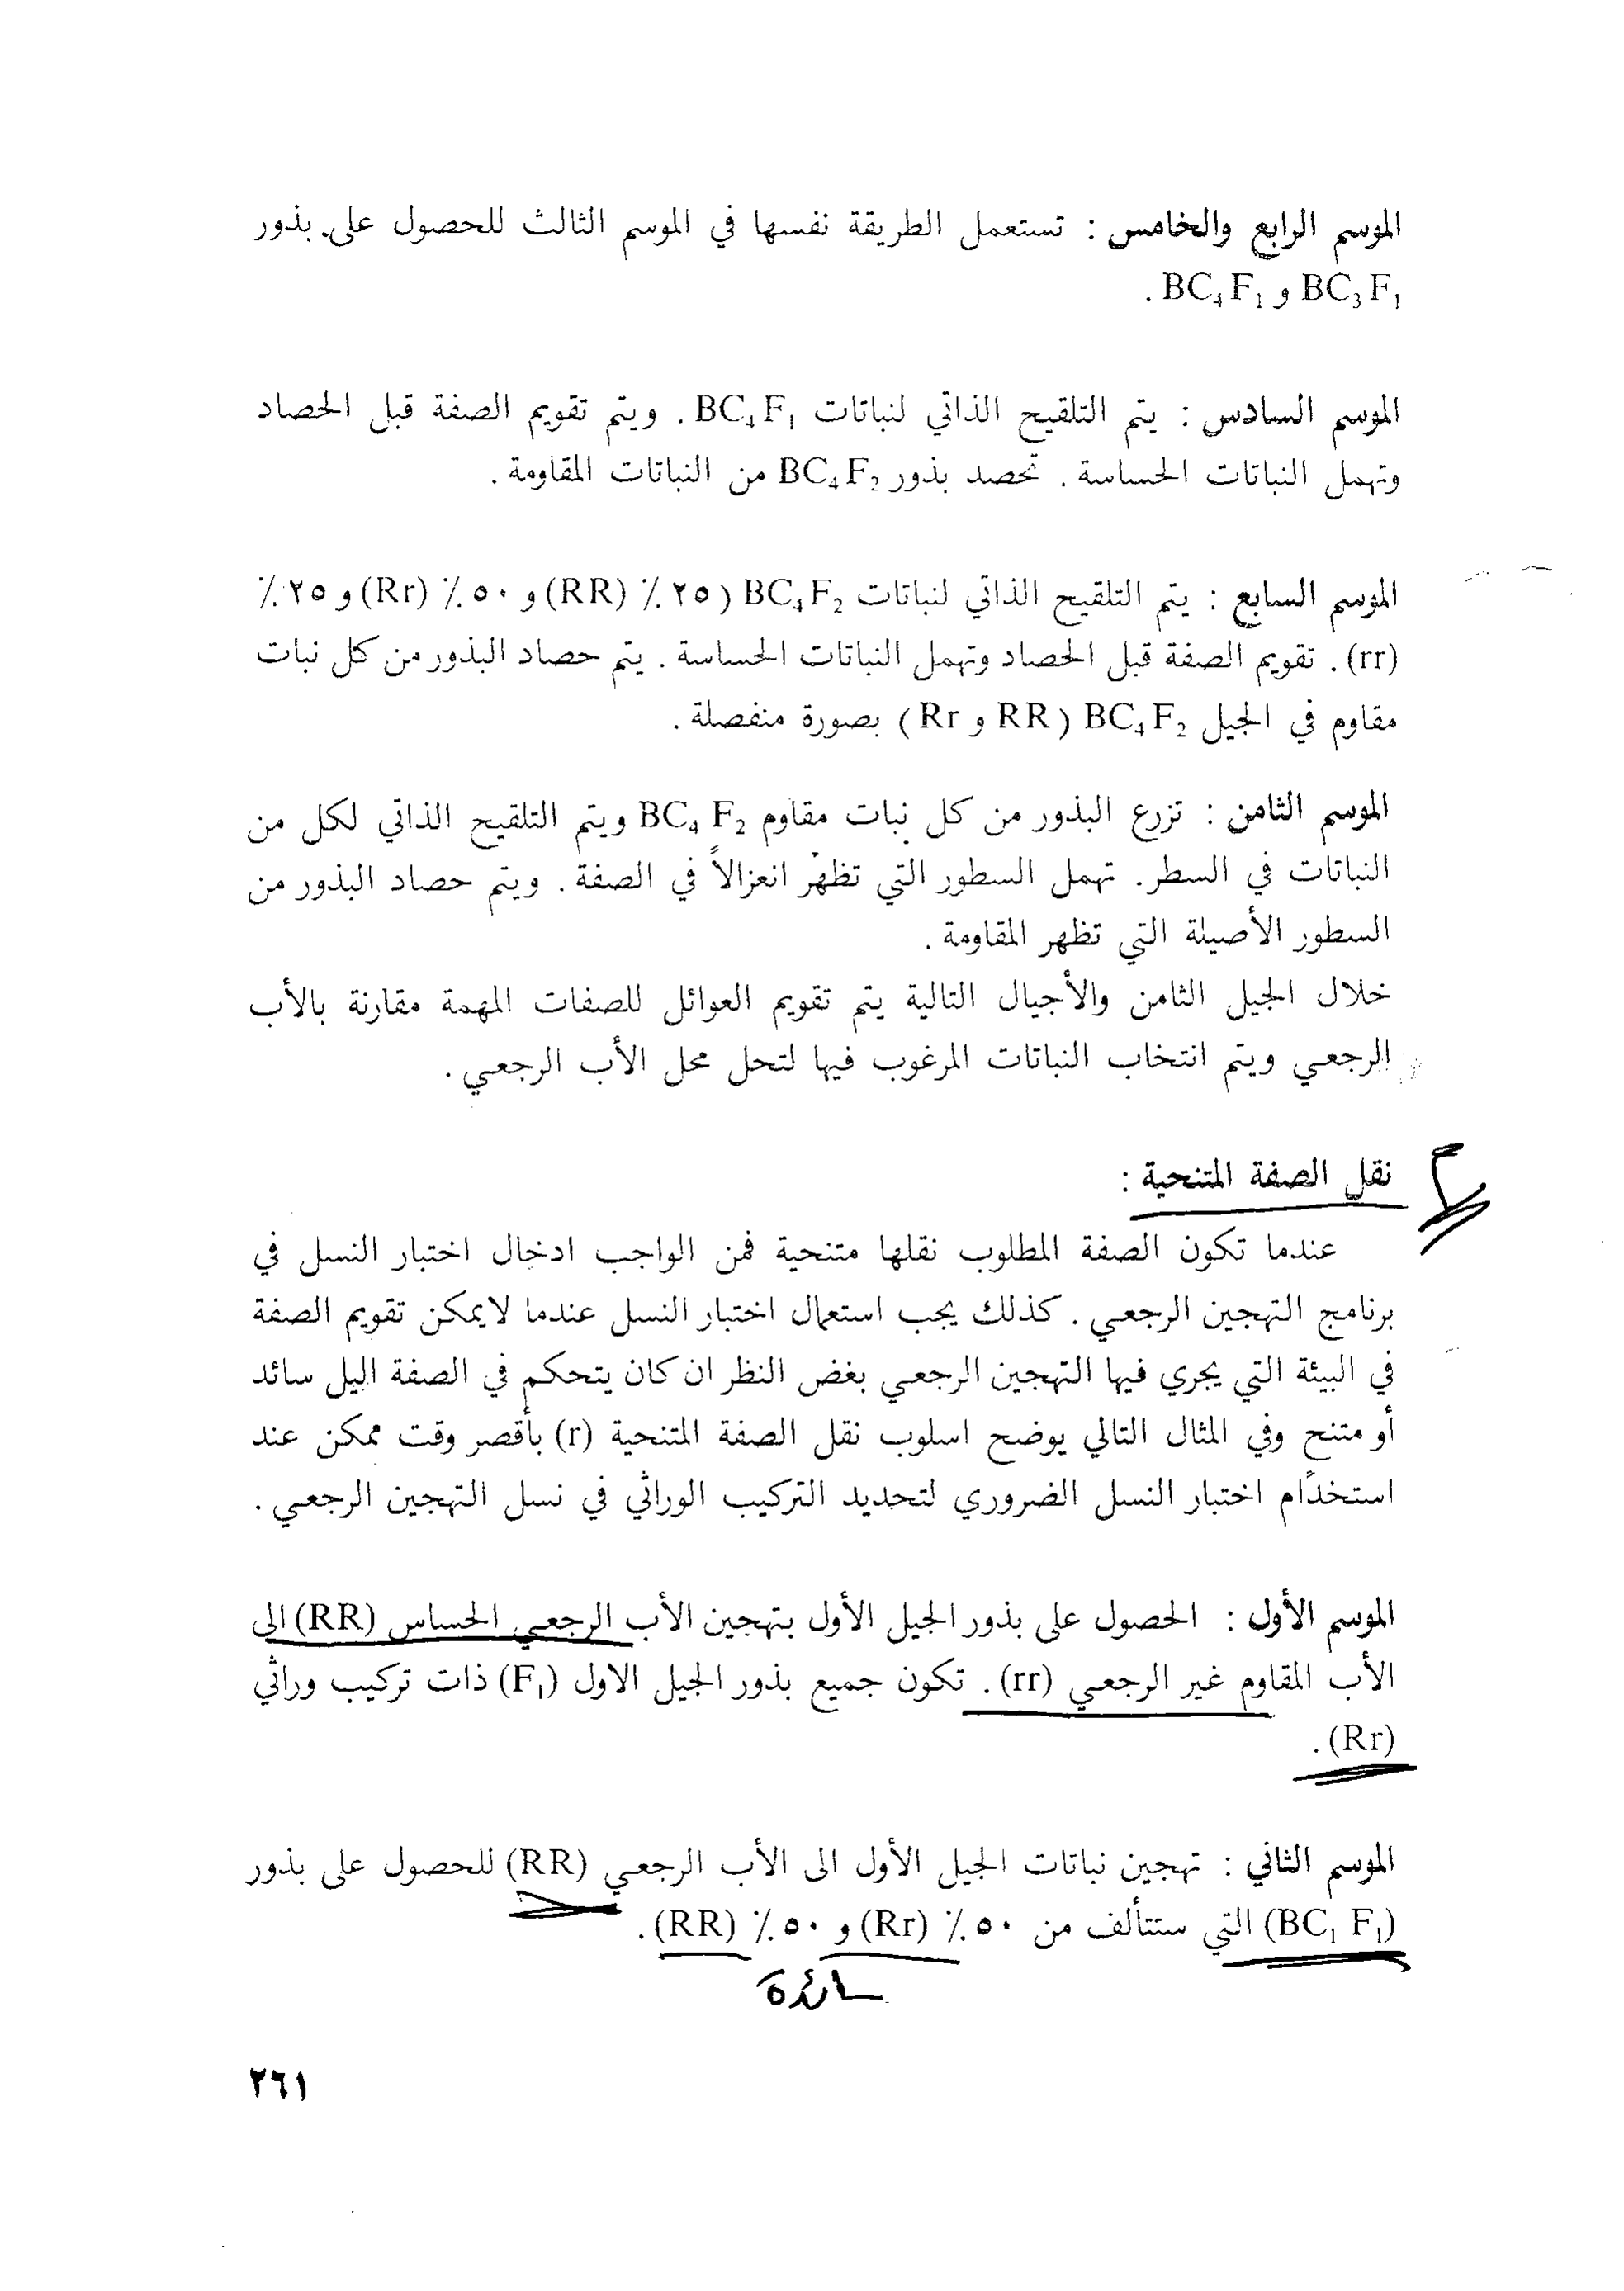 الموسم الرابع والخامس : تستعمل الطريقة نفسها في الموسم الثالث للحصول على بذور
BC₃F₁ و BC₄F₁ .
الموسم السادس : يتم التلقيح الذاتي لنباتات BC₄F₁ . ويتم تقويم الصفة قبل الحصاد
وتهمل النباتات الحساسة . تحصد بذور BC₄F₂ من النباتات المقاومة .
الموسم السابع : يتم التلقيح الذاتي لنباتات BC₄F₂ (٢٥ ٪ (RR) و ٥٠ ٪ (Rr) و ٢٥ ٪
(rr) . تقويم الصفة قبل الحصاد وتهمل النباتات الحساسة . يتم حصاد البذور من كل نبات
مقاوم في الجيل BC₄F₂ (RR و Rr) بصورة منفصلة .
الموسم الثامن : تزرع البذور من كل نبات مقاوم BC₄ F₂ ويتم التلقيح الذاتي لكل من
النباتات في السطر . تهمل السطور التي تظهر انعزالاً في الصفة . ويتم حصاد البذور من
السطور الأصيلة التي تظهر المقاومة .
خلال الجيل الثامن والأجيال التالية يتم تقويم العوائل للصفات المهمة مقارنة بالأب
الرجعي ويتم انتخاب النباتات المرغوب فيها لتحل محل الأب الرجعي .
نقل الصفة المتنحية :
عندما تكون الصفة المطلوب نقلها متنحية فمن الواجب ادخال اختبار النسل في
برنامج التهجين الرجعي . كذلك يجب استعمال اختبار النسل عندما لايمكن تقويم الصفة
في البيئة التي يجري فيها التهجين الرجعي بغض النظر ان كان يتحكم في الصفة اليل سائد
أو متنح وفي المثال التالي يوضح اسلوب نقل الصفة المتنحية (r) بأقصر وقت ممكن عند
استخدام اختبار النسل الضروري لتحديد التركيب الوراثي في نسل التهجين الرجعي .
الموسم الأول : الحصول على بذور الجيل الأول بتهجين الأب الرجعي الحساس (RR) الى
الأب المقاوم غير الرجعي (rr) . تكون جميع بذور الجيل الاول (F₁) ذات تركيب وراثي
(Rr) .
الموسم الثاني : تهجين نباتات الجيل الأول الى الأب الرجعي (RR) للحصول على بذور
(BC₁ F₁) التي ستتألف من ٥٠ ٪ (Rr) و ٥٠ ٪ (RR) .
سائدة
٢٦١